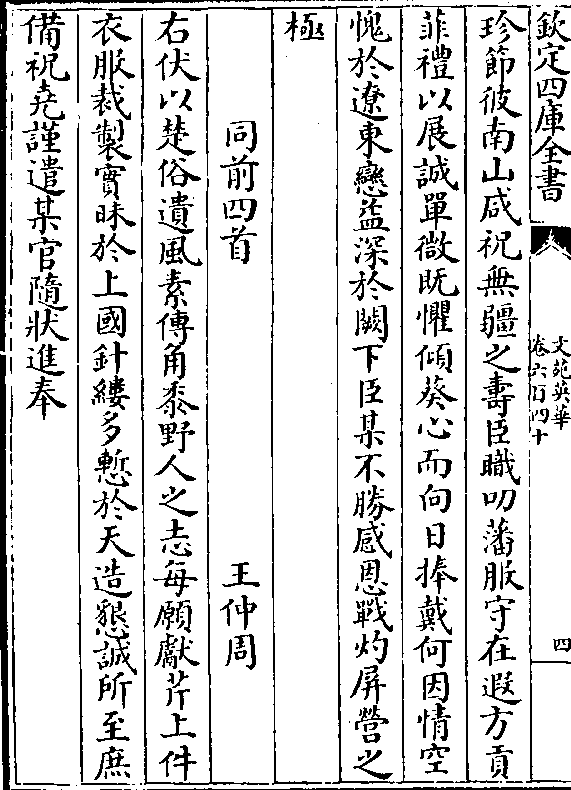 欽定四庫全書
文苑英華
卷六百四十
四
珍節彼南山咸祝無疆之壽臣職叨藩服守在遐方貢
菲禮以展誠單微既懼傾葵心而向日捧戴何因情空
愧於遼東戀益深於闕下臣某不勝感恩戰灼屏營之
極
同前四首
王仲周
右伏以楚俗遺風素傳角黍野人之志每願獻芹上件
衣服裁製實昧於上國針縷多慙於天造懇誠所至庶
備祝堯謹遣某官隨狀進奉